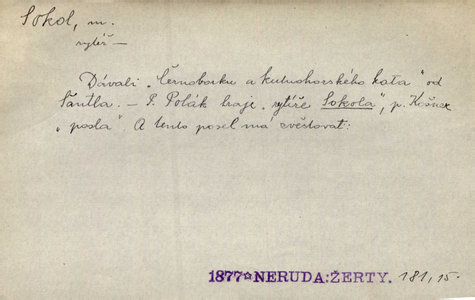 Sokol, m.
rytíř –
Dávali „Černoborku a kutnohorského kata" od
Šantla. – P. Polák hraje „rytíře Sokola", p. Košner
„posla". A tento posel má zvěstovat:
1877☆NERUDA:ŽERTY. 181,15.